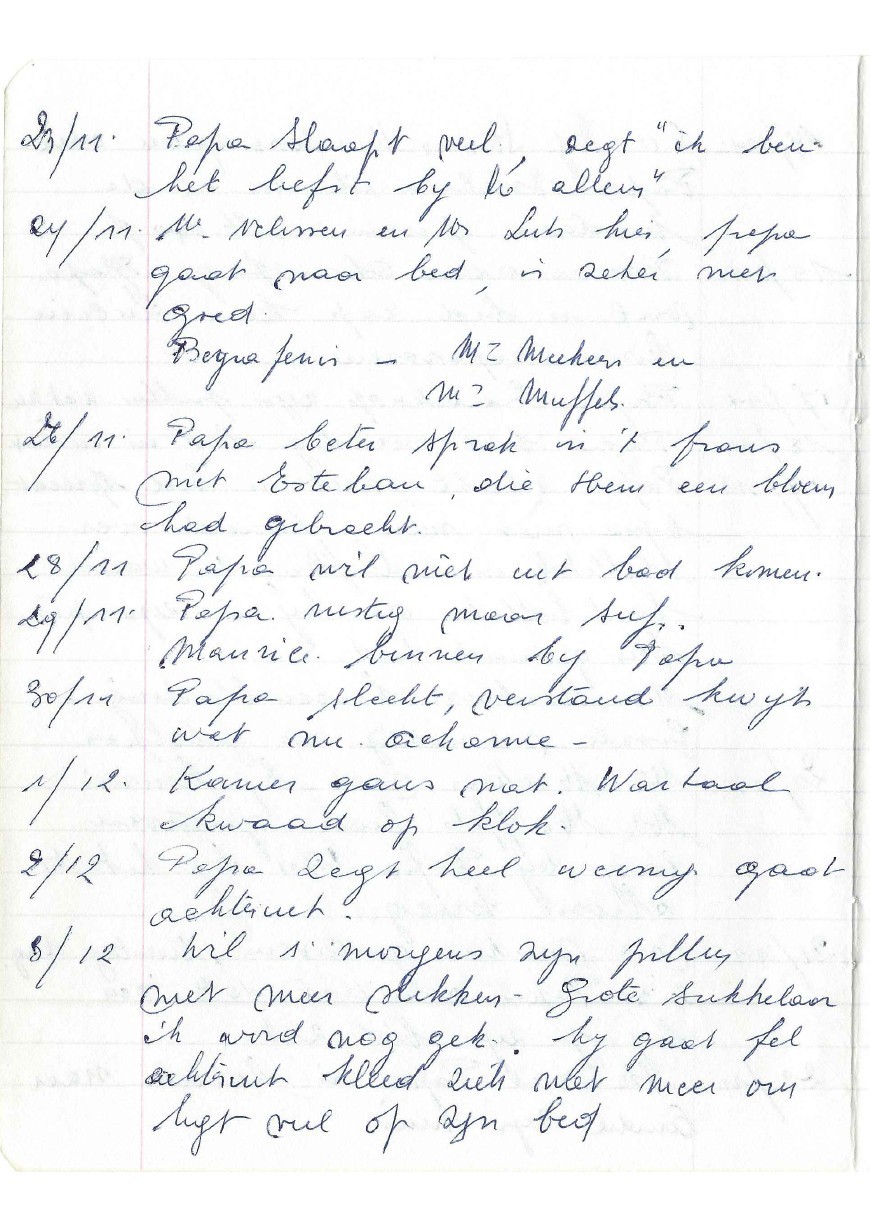 23/11. Papa slaapt veel, zegt "ik ben
het liefst by allen"
24/11. en Luts hier, papa
gaat naar bed, is zeker niet
goed.
Begrafenis - Mr Meekers en
Mr Muffels.
26/11. Papa beter sprak in 't frans
met Esteban, die hem een bloem
had gebracht.
28/11 Papa wil niet uit bed komen.
29/11. Papa rustig maar suf..
Maurice binnen by Papa
30/11 Papa slecht, verstand kwyt
wat nu. ocharme -
1/12. Kamer gans nat. Wartaal
kwaad op klok.
2/12 Papa zegt heel weinig gaat
achteruit.
3/12 Wil s'morgens zyn pillen
niet meer slikken - Grote sukkelaar
ik word nog gek. hy gaat fel
achteruit kleed zich niet meer om
ligt veel op zyn bed